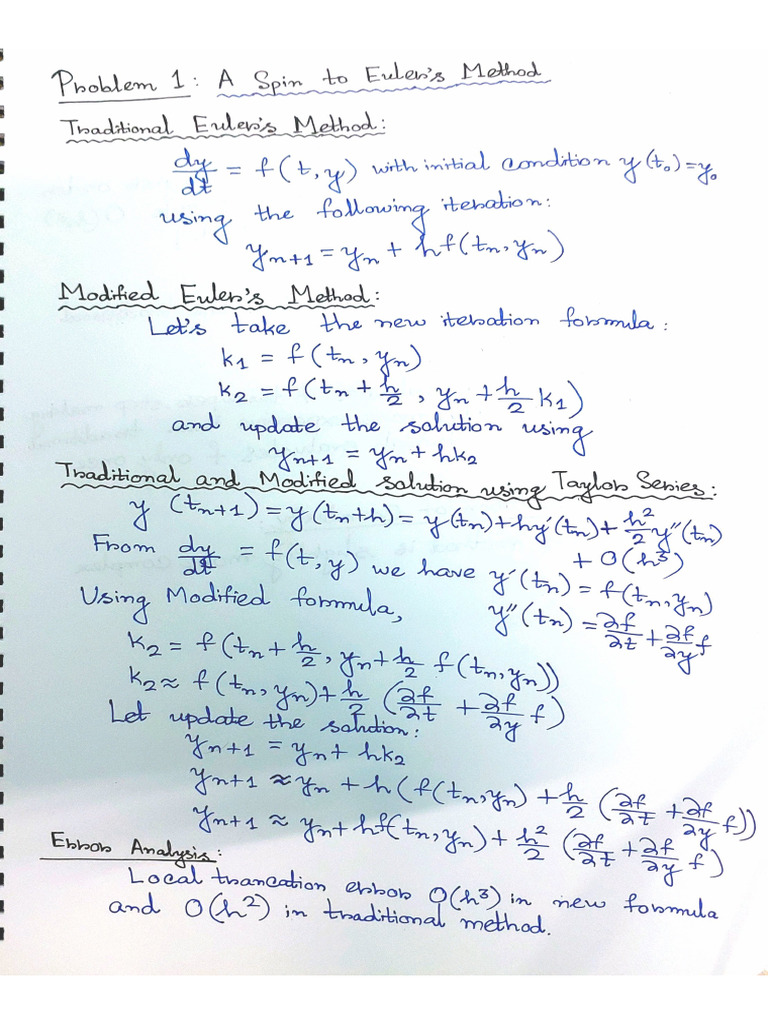 Problem 1: A Spin to Euler's Method
Traditional Euler's Method:
dy/dt = f(t, y) with initial condition y(t₀) = y₀
using the following iteration:
yₙ₊₁ = yₙ + hf(tₙ, yₙ)
Modified Euler's Method:
Let's take the new iteration formula:
k₁ = f(tₙ, yₙ)
k₂ = f(tₙ + h/2, yₙ + h/2 k₁)
and update the solution using
yₙ₊₁ = yₙ + hk₂
Traditional and Modified solution using Taylor Series:
y(tₙ₊₁) = y(tₙ+h) = y(tₙ) + hy'(tₙ) + h²/2 y''(tₙ)
+ O(h³)
From dy/dt = f(t, y) we have y'(tₙ) = f(tₙ, yₙ)
Using Modified formula, y''(tₙ) = ∂f/∂t + ∂f/∂y f
k₂ = f(tₙ + h/2, yₙ + h/2 f(tₙ, yₙ))
k₂ ≈ f(tₙ, yₙ) + h/2 (∂f/∂t + ∂f/∂y f)
Let update the solution:
yₙ₊₁ = yₙ + hk₂
yₙ₊₁ ≈ yₙ + h(f(tₙ, yₙ) + h/2 (∂f/∂t + ∂f/∂y f))
yₙ₊₁ ≈ yₙ + hf(tₙ, yₙ) + h²/2 (∂f/∂t + ∂f/∂y f)
Error Analysis:
Local trancation error O(h³) in new formula
and O(h²) in traditional method.